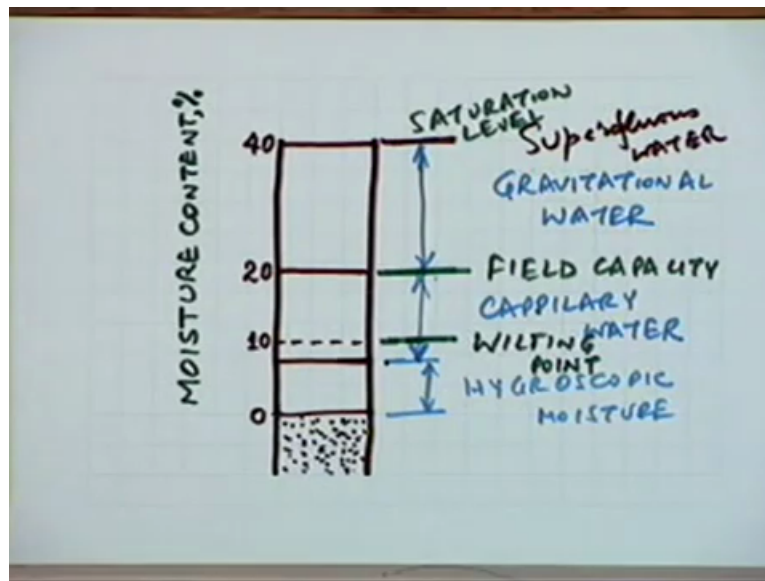 MOISTURE CONTENT,%
SATURATION
LEVEL
Superfluous
WATER
40
GRAVITATIONAL
WATER
20
FIELD CAPACITY
CAPPILARY
WATER
10
WILTING
POINT
HYGROSCOPIC
MOISTURE
0